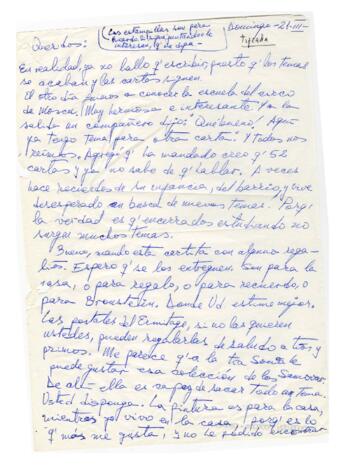 Las estampillas son para
Domingo - 21 - III -
Queridos:
En realidad, ya no hallo q' escribir, puesto q' los temas
se acaban y las cartas siguen.
El otro día fuimos a conocer la escuela del circo
de Moscú. Muy hermosa e interesante. Y a la
salida un compañero dijo: ¡Qué bueno! Aquí
ya tengo tema para otra carta. Y todos nos
reímos. Agregó q' ha mandado creo q' 52
cartas y ya no sabe de q' hablar. A veces
hace recuerdos de su infancia, del barrio, y vive
desesperado en busca de nuevos temas. Porq'
la verdad es q' encerrados estudiando no
surgen muchos temas.
Bueno, mando esta cartita con algunos rega-
litos. Espero q' se los entreguen. Son para la
casa, o para regalo, o para recuerdo, o
para Bronstein. Donde Ud. estime mejor.
Las postales del Ermitage, si no las quieren
ustedes, pueden regalarlas de saludo a tíos y
primos. Me parece q' a la tía
puede gustar esa colección de los Samovar.
De allí ella es capaz de sacar todo un tema.
Usted disponga. La pintura es para la casa,
mientras yo vivo en la casa, porq' es lo
q' más me gusta, y no he podido encontrar